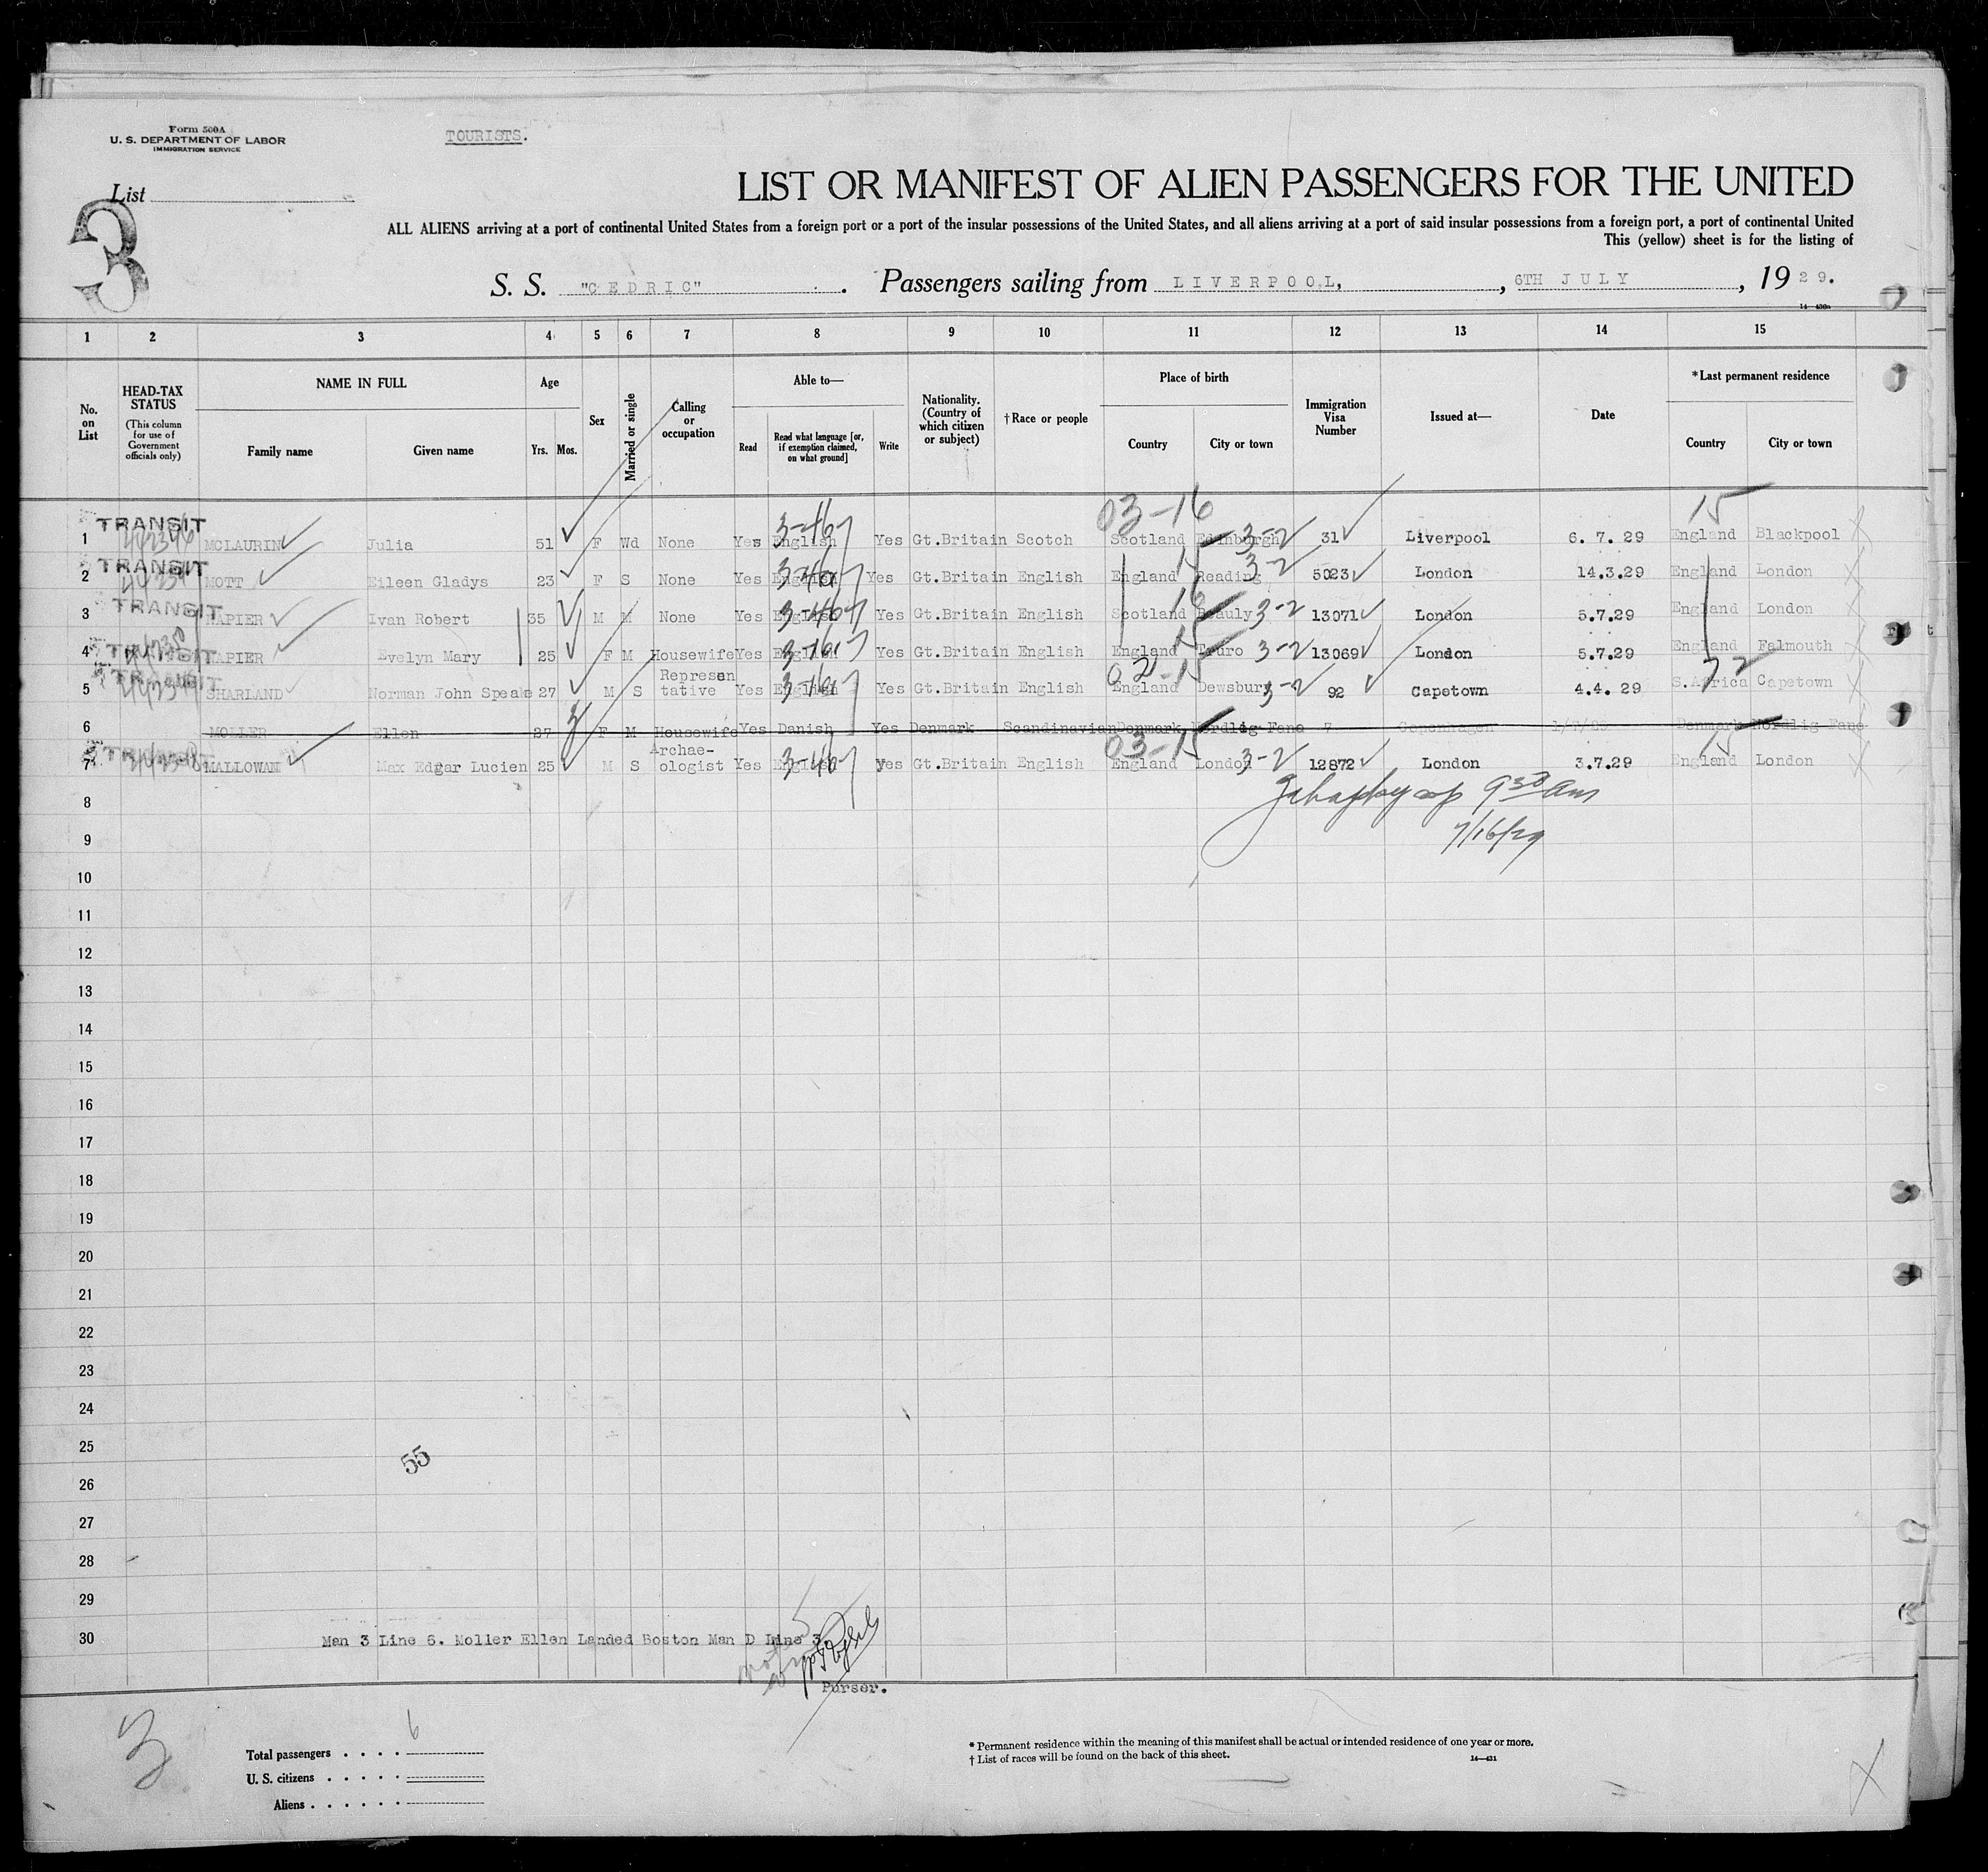 Form 500A
U. S. DEPARTMENT OF LABOR
IMMIGRATION SERVICE
TOURISTS.
List
3
LIST OR MANIFEST OF ALIEN PASSENGERS FOR THE UNITED
ALL ALIENS arriving at a port of continental United States from a foreign port or a port of the insular possessions of the United States, and all aliens arriving at a port of said insular possessions from a foreign port, a port of continental United
This (yellow) sheet is for the listing of
S. S. "CEDRIC" . Passengers sailing from LIVERPOOL, , 6TH JULY , 1929.
14—430a
1 2 3 4 5 6 7 8 9 10 11 12 13 14 15
No. on List
HEAD-TAX STATUS
(This column for use of Government officials only)
NAME IN FULL
Family name Given name
Age
Yrs. Mos.
Sex
Married or single
Calling or occupation
Able to—
Read Read what language [or, if exemption claimed, on what ground] Write
Nationality. (Country of which citizen or subject)
†Race or people
Place of birth
Country City or town
Immigration Visa Number
Issued at—
Date
*Last permanent residence
Country City or town
03-16 15
1 TRANSIT MCLAURIN Julia 51 F Wd None Yes English 3-46 Yes Gt.Britain Scotch Scotland Edinburgh 3-2 31 Liverpool 6. 7. 29 England Blackpool
2 TRANSIT MOTT Eileen Gladys 23 F S None Yes English Yes Gt.Britain English England Reading 3-2 5023 London 14.3.29 England London
3 TRANSIT NAPIER Ivan Robert 35 M M None Yes English Yes Gt.Britain English Scotland Beauly 3-2 13071 London 5.7.29 England London
4 TRANSIT NAPIER Evelyn Mary 25 F M Housewife Yes English Yes Gt.Britain English England Truro 3-2 13069 London 5.7.29 England Falmouth
5 TRANSIT SHARLAND Norman John Speake 27 M S Represen tative Yes English Yes Gt.Britain English England Dewsbury 3-2 92 Capetown 4.4. 29 S.Africa Capetown
6 MOLLER Ellen 27 F M Housewife Yes Danish Yes Denmark Scandinavian Denmark Nordlig Fano 7 Copenhagen 1/7/29 Denmark Nordlig Fano
03-15 15
7 TRANSIT MALLOWAN Max Edgar Lucien 25 M S Archae- ologist Yes English 3-46 yes Gt.Britain English England London 3-2 12872 London 3.7.29 England London
8 9 30 am
9 7/16/29
10
11
12
13
14
15
16
17
18
19
20
21
22
23
24
25
55
26
27
28
29
30 Man 3 Line 6. Moller Ellen Landed Boston Man D Line 3.
Purser.
3
Total passengers . . . . 6
U. S. citizens . . . . .
Aliens . . . . . .
* Permanent residence within the meaning of this manifest shall be actual or intended residence of one year or more.
† List of races will be found on the back of this sheet. 14—431